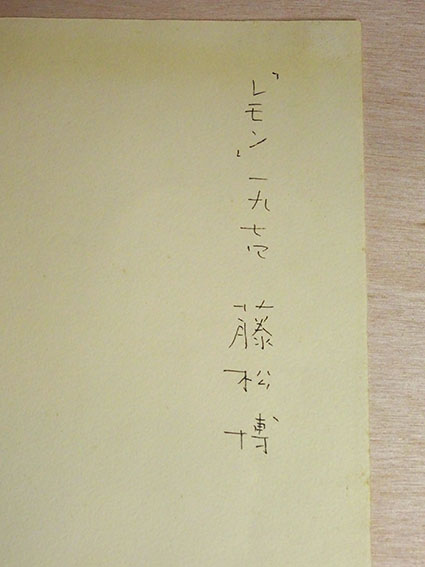 「レモン」一九七六 藤松博